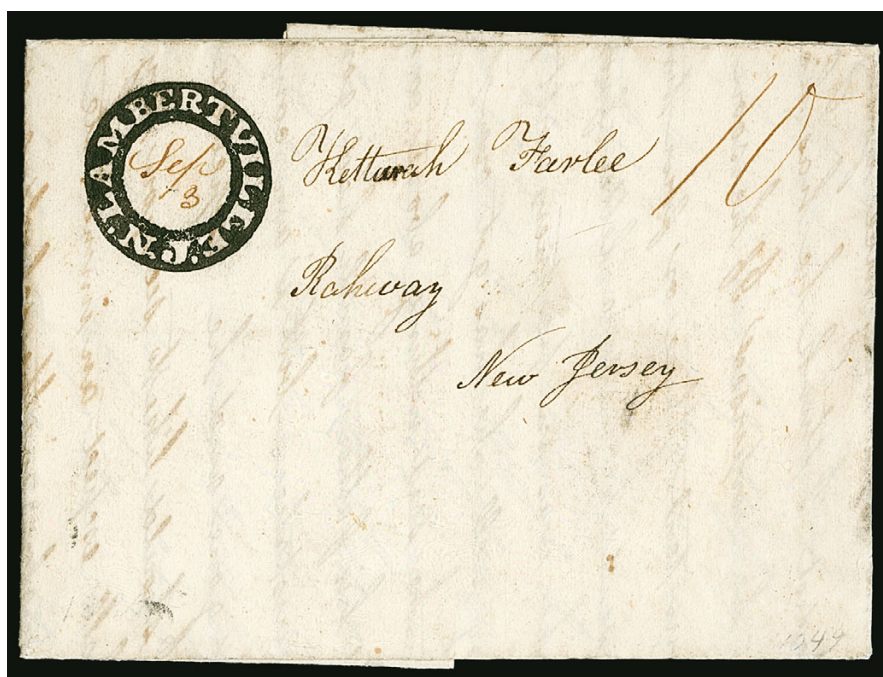 LAMBERTVILLE. N. J.
Sep
13
10
Ketturah Farlee
Rahway
New Jersey